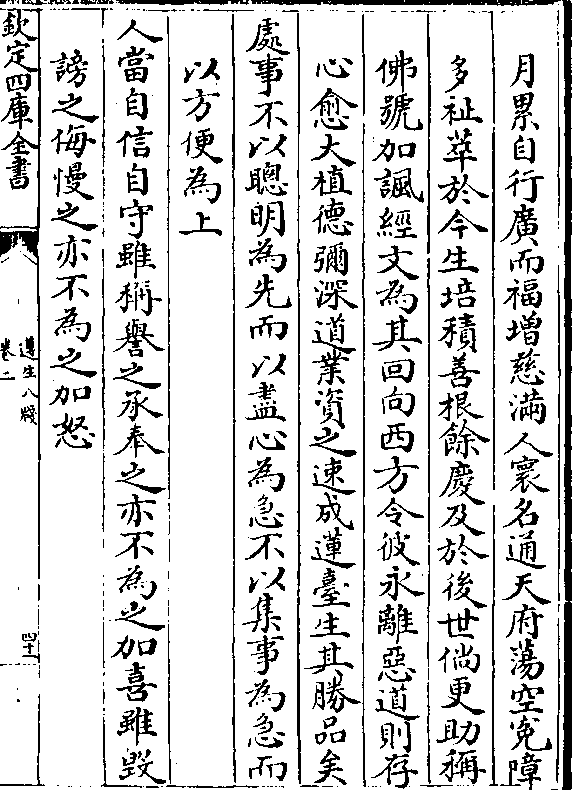 月累自行廣而福增慈滿人寰名通天府蕩空寃障
多祉萃於今生培積善根餘慶及於後世倘更助稱
佛號加諷經文為其回向西方令彼永離惡道則存
心愈大植德彌深道業資之速成蓮臺生其勝品矣
處事不以聰明為先而以盡心為急不以集事為急而
以方便為上
人當自信自守雖稱譽之承奉之亦不為之加喜雖毀
謗之侮慢之亦不為之加怒
欽定四庫全書
遵生八牋
卷一
四十